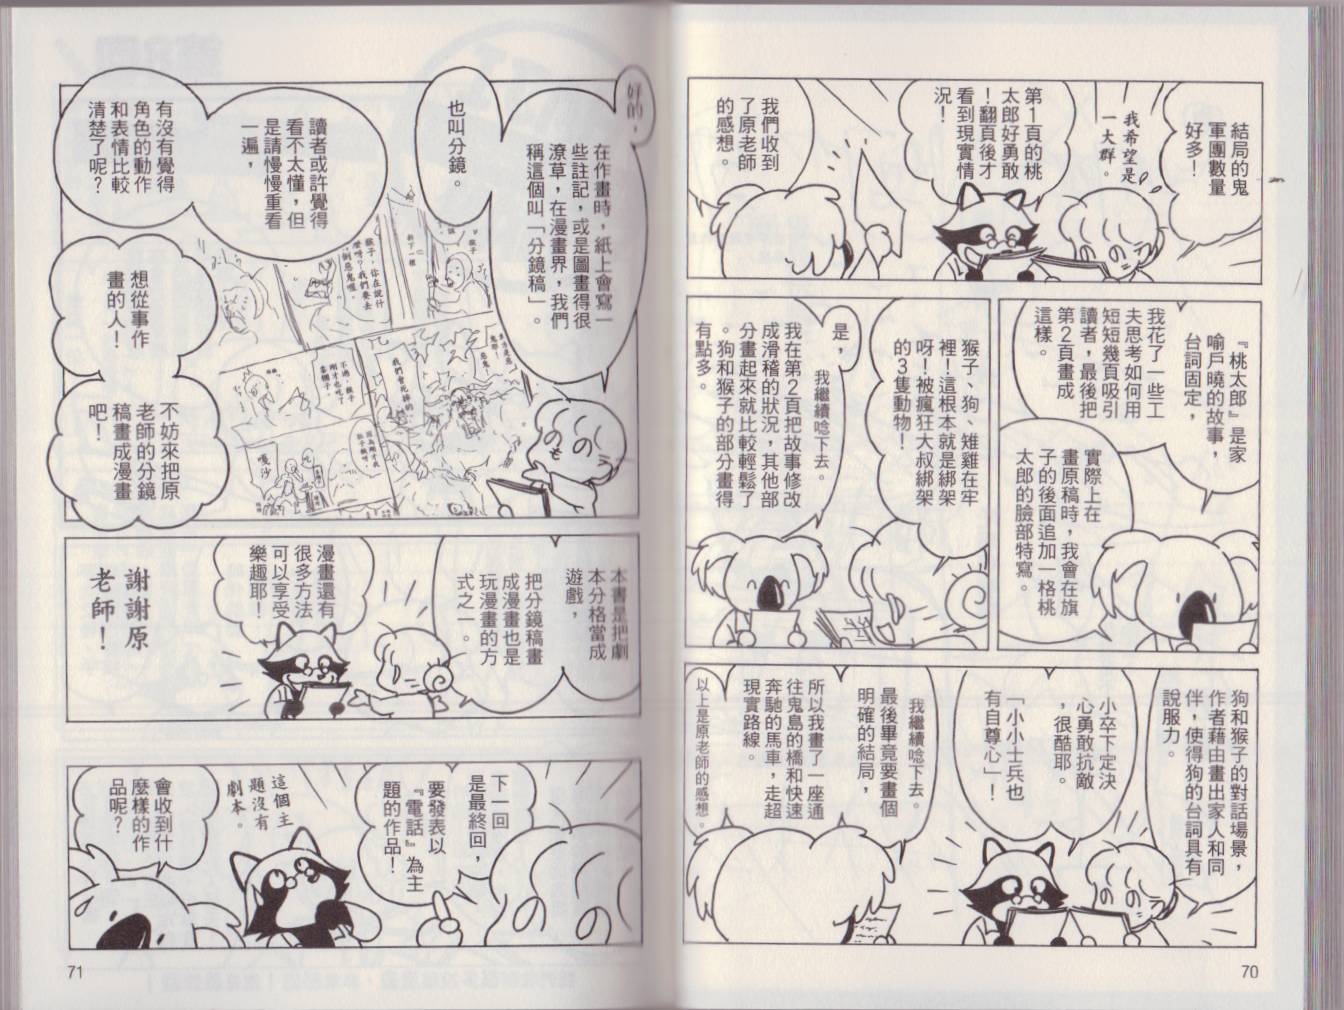 結局的鬼
軍團數量
好多！
我希望是
一大群。
第1頁的桃
太郎好勇敢
！翻頁後才
看到現實情
況！
我們收到
了原老師
的感想。
『桃太郎』是家
喻戶曉的故事，
台詞固定，
我花了一些工
夫思考如何用
短短幾頁吸引
讀者，最後把
第2頁畫成
這樣。
實際上在
畫原稿時，我會在旗
子的後面追加一格桃
太郎的臉部特寫。
猴子、狗、雉雞在牢
裡！這根本就是綁架
呀！被瘋狂大叔綁架
的3隻動物！
是，
我繼續唸下去。
我在第2頁把故事修改
成滑稽的狀況，其他部
分畫起來就比較輕鬆了
。狗和猴子的部分畫得
有點多。
狗和猴子的對話場景，
作者藉由畫出家人和同
伴，使得狗的台詞具有
說服力。
小卒下定決
心勇敢抗敵
，很酷耶。
「小小士兵也
有自尊心」！
我繼續唸下去。
最後畢竟要畫個
明確的結局，
所以我畫了一座通
往鬼島的橋和快速
奔馳的馬車，走超
現實路線。
以上是原老師的感想。
70
好的，
在作畫時，紙上會寫一
些註記，或是圖畫得很
潦草，在漫畫界，我們
稱這個叫「分鏡稿」。
也叫分鏡。
讀者或許覺得
看不太懂，但
是請慢慢重看
一遍，
有沒有覺得
角色的動作
和表情比較
清楚了呢？
猴子，你在說什
麼呀？我們要去
倒惡鬼喔。
我們會死掉的
嘎沙
想從事作
畫的人！
不妨來把原
老師的分鏡
稿畫成漫畫
吧！
本書是把劇
本分格當成
遊戲，
把分鏡稿畫
成漫畫也是
玩漫畫的方
式之一。
漫畫還有
很多方法
可以享受
樂趣耶！
謝謝原
老師！
下一回
是最終回，
要發表以
『電話』為主
題的作品！
這個主
題沒有
劇本。
會收到什
麼樣的作
品呢？
71